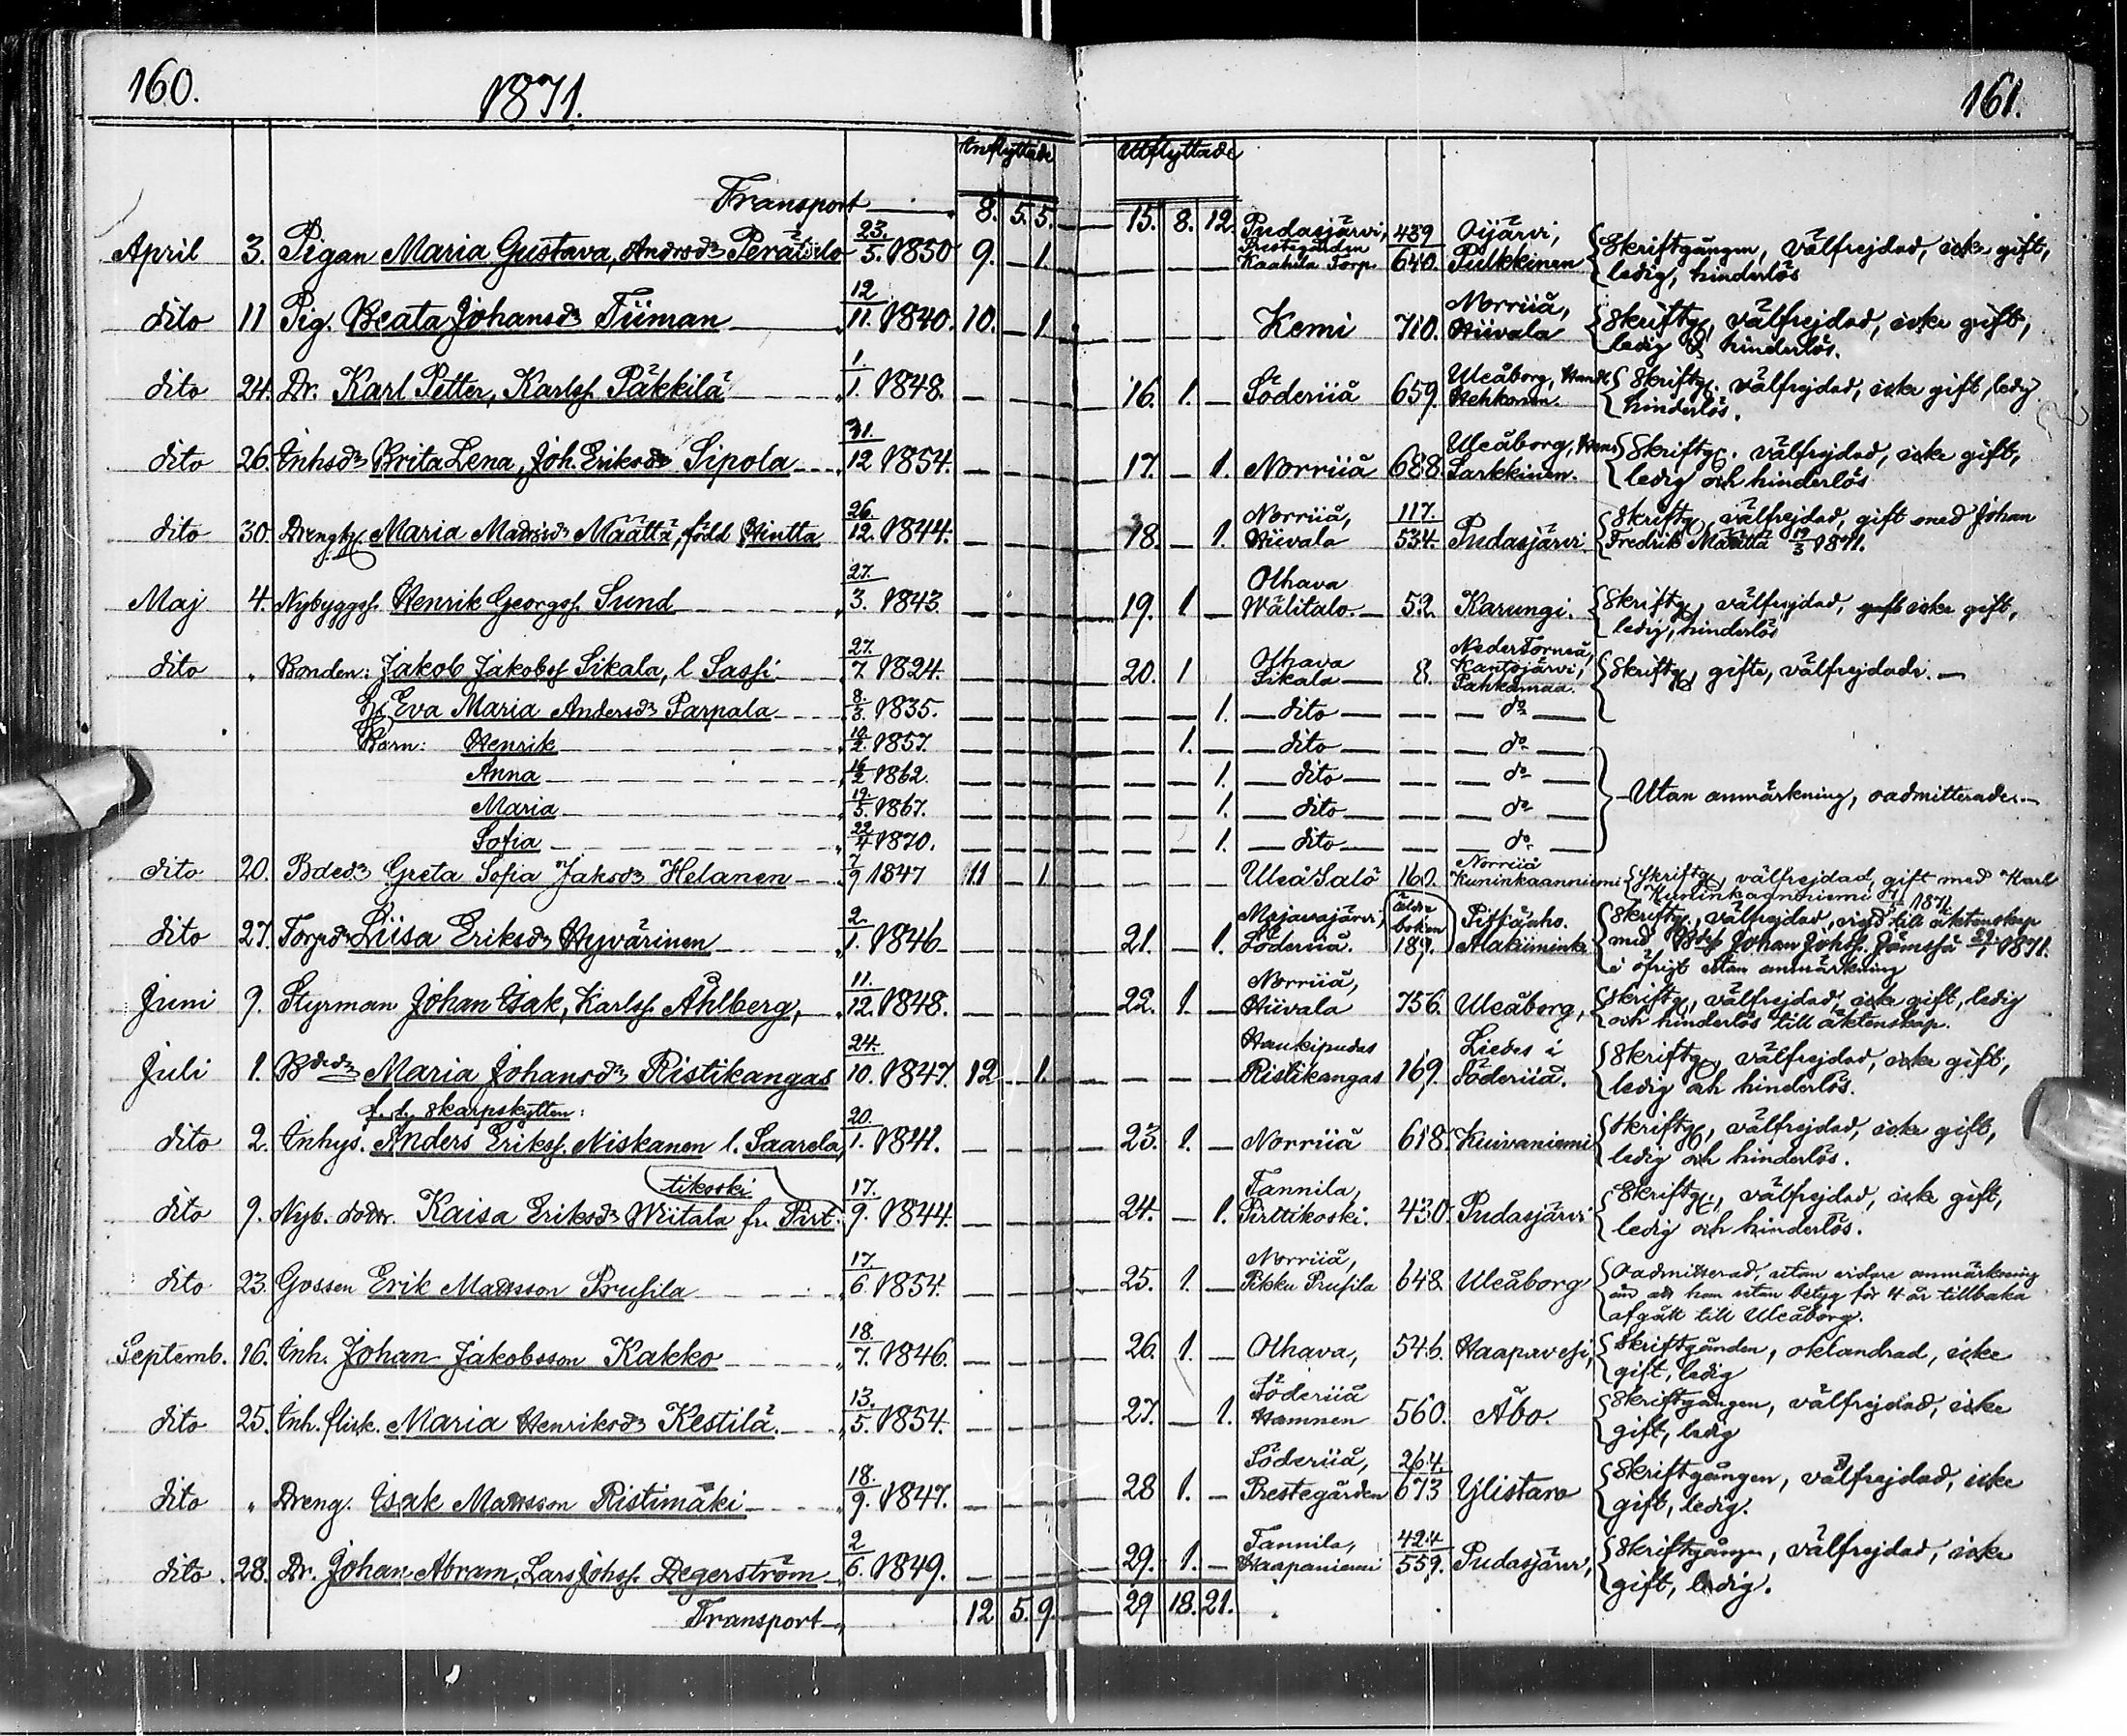 160.
1871.
161.
Inflyttade
Utflyttade
Transport 8. 5. 5. 15. 8. 12.
April 3. Pigan Maria Gustava, Andersdr Perätalo 23/5. 1850 9. — 1. Pudasjärvi, Prestegården Kaahila Torp. 439/640. Oijärvi, Pulkkinen Skriftgången, välfrejdad, icke gift,
ledig, hinderlös
dito 11 Pig. Beata Johansdr Tiiman 12/11. 1840. 10. — 1. Kemi 710. Norriiå, Hiivala Skriftg, välfrejdad, icke gift,
ledig & hinderlös.
dito 24. Dr. Karl Petter, Karlss. Päkkilä 1./1. 1848. 16. 1. — Söderiiå 659. Uleåborg, Handl Hehkonen. Skriftg. välfrejdad, icke gift, ledig
hinderlös.
dito 26. Inhsdr Brita Lena, Joh. Eriksdr Sipola 31./12 1854. 17. — 1. Norriiå 688. Uleåborg, Sarkkinen. Skriftg. välfrejdad, icke gift,
ledig och hinderlös
dito 30. Drenghy Maria Matsdr Määttä, född Hintta 26./12. 1844. 18. — 1. Norriiå, Hiivala 117./534. Pudasjärvi. Skriftg, välfrejdad, gift med Johan
Fredrik Määttä 19/3 1871.
Maj 4. Nybyggss. Henrik Georgss. Sund 27./3. 1843. 19. 1 — Olhava Wälitalo. 52. Karungi. Skriftg, välfrejdad, gift icke gift,
ledig, hinderlös
dito „ Bonden: Jakob Jakobss Sikala, l. Sassi 27./7. 1824. 20. 1 Olhava Sikala 8. NederTorneå, Kantojärvi, Pahkamaa. Skriftg, gifte, välfrejdade. —
H. Eva Maria Andersdr Parpala 8/3. 1835. 1. dito do
Barn: Henrik 10/2. 1857. 1. dito do
Anna 16/2 1862. 1. dito do
Maria 19./5. 1867. 1. dito do Utan anmärkning, oadmitterade.
Sofia 22/4 1870. 1. dito do
dito 20. Bdedr Greta Sofia Jaksdr Helanen 7/9 1847 11 — 1. Uleå Salo 160. Norriiå Kuninkaanniemi Skriftg, välfrejdad, gift med Karl
Kuninkaanniemi 1871.
dito 27. Torpdr Liisa Eriksdr Hyvärinen 2./1. 1846 21. — 1. Majavajärvi, Söderiiå. äldre boken 189. Pittäaho. Alakiiminki Skriftg, välfrejdad, vigd till äktenskap
med Bdss Johan Johss. Jämssä 1871.
i öfrigt utan anmärkning
Juni 9. Styrman Johan Isak, Karlss. Åhlberg, 11./12. 1848. 22. 1. — Norriiå, Hiivala 756. Uleåborg, Skriftg, välfrejdad, icke gift, ledig
och hinderlös till äktenskap.
Juli 1. Bdedr Maria Johansdr Ristikangas 24./10. 1847. 12 — 1. Haukipudas Ristikangas 169. Liedes i Söderiiå. Skriftg, välfrejdad, icke gift,
ledig och hinderlös.
f. d. skarpskytten:
dito 2. Inhys. Anders Erikss. Niskanen l. Saarela 20./1. 1841. 23. 1. — Norriiå 618. Kuivaniemi Skriftg, välfrejdad, icke gift,
ledig och hinderlös.
dito 9. Nyb. dottr. Kaisa Eriksdr Wiitala fr. Pirttikoski 17./9. 1844. 24. — 1. Tannila, Pirttikoski. 430. Pudasjärvi Skriftg, välfrejdad, icke gift,
ledig och hinderlös.
dito 23. Gossen Erik Matsson Prusila 17./6. 1854. 25. 1. — Norriiå, Pikku Prusila 648. Uleåborg Oadmitterad, utan vidare anmärkning
än att han utan betyg för 4 år tillbaka
afgått till Uleåborg.
Septemb. 16. Inh. Johan Jakobsson Kakko 18./7. 1846. 26. 1. — Olhava, 546. Haapavesi, Skriftgången, oklandrad, icke
gift, ledig
dito 25. Inh. flick. Maria Henriksdr Kestilä. 13./5. 1854. 27. — 1. Söderiiå Hamnen 560. Åbo. Skriftgången, välfrejdad, icke
gift, ledig
dito „ Dreng. Isak Matsson Ristimäki 18./9. 1847. 28 1. — Söderiiå, Prestegården 264./673 Ylistaro Skriftgången, välfrejdad, icke
gift, ledig.
dito 28. Dr. Johan Abram, Lars Johss. Degerström 2/6. 1849. 29. 1. — Tannila, Haapaniemi 424/559. Pudasjärvi, Skriftgången, välfrejdad, icke
gift, ledig.
Transport 12 5. 9. 29 18. 21.